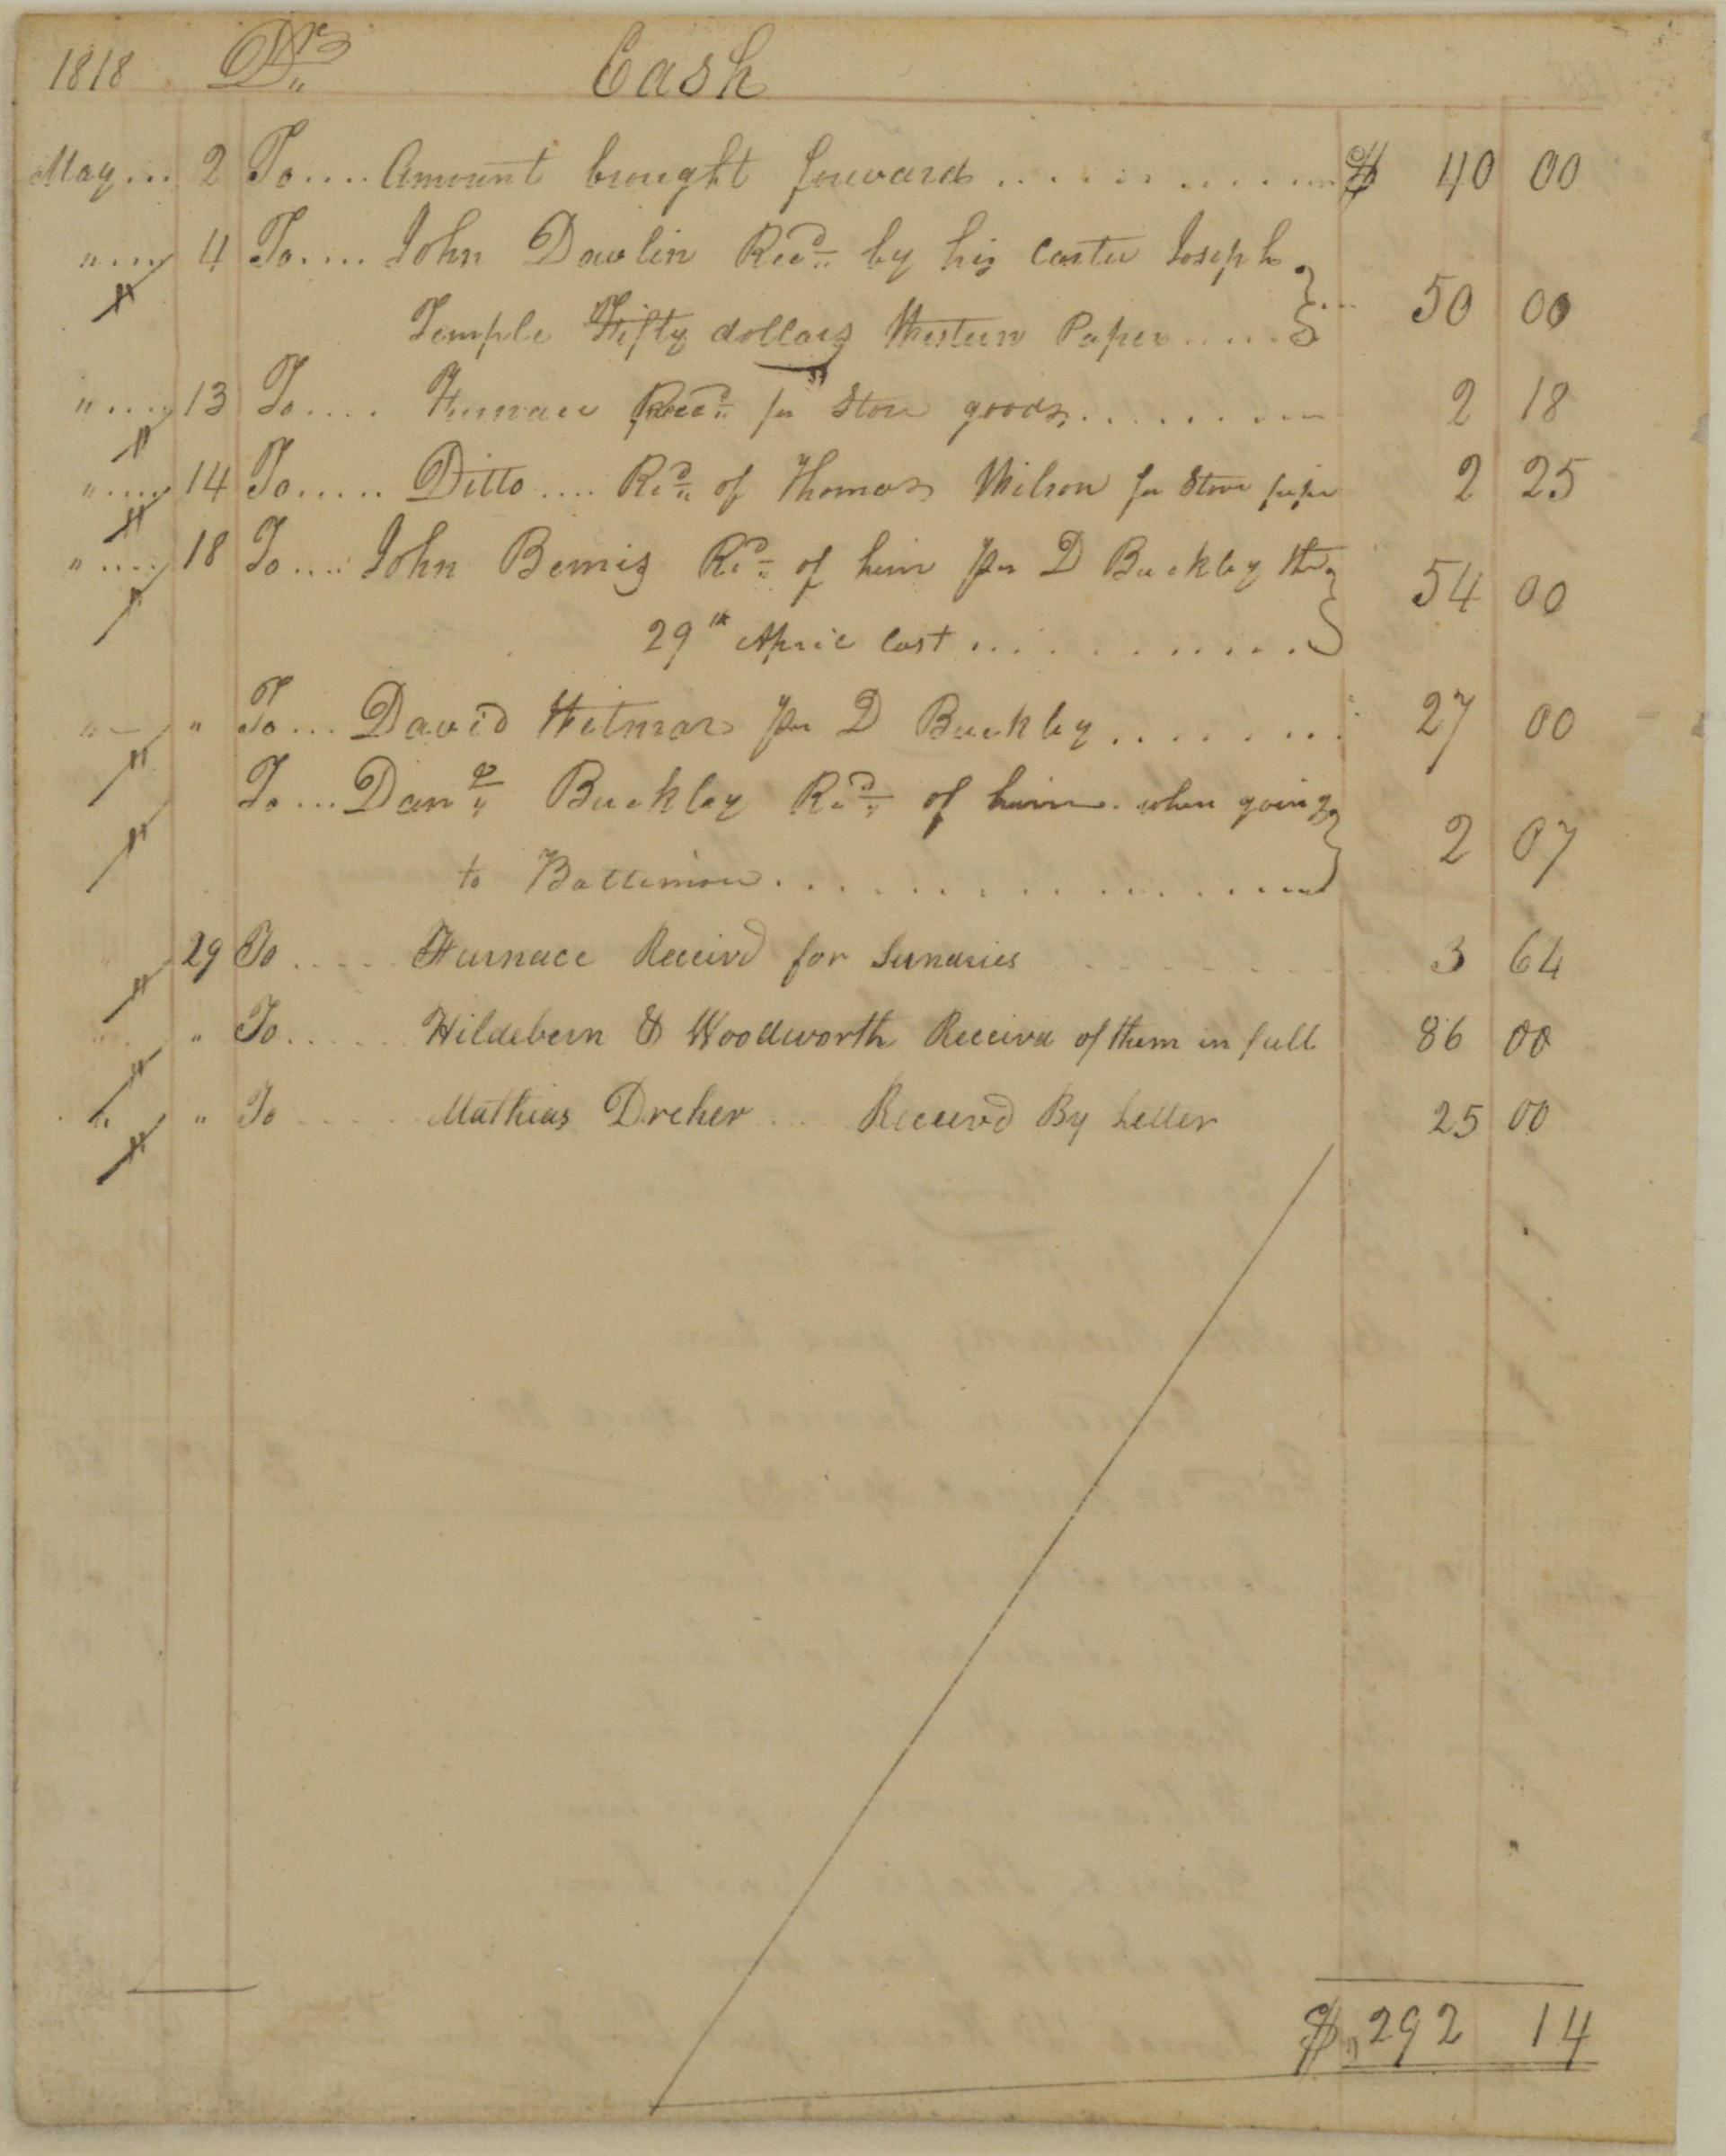 1818 Dr Cash
May ... 2 To .... Amount brought forward ............ $ 40 00
" .... 4 To .... John Dawlin Recd by his Carter Joseph
Temple Fifty dollars Western Paper ..... 50 00
" .... 13 To .... Furnace Recd for Store goods ......... 2 18
" .... 14 To ..... Ditto .... Recd of Thomas Wilson for Stove pipe 2 25
" .... 18 To .... John Bemis Recd of him per D Buckley the 54 00
29th April last ............
" " To ... David Witmar per D Buckley ........ 27 00
To ... Danl Buckley Recd of him when going 2 07
to Baltimore ...............
29 To ..... Furnace Receivd for Sundries 3 64
" " To ..... Hildeburn & Woodworth Receivd of them in full 86 00
" " To ..... Mathias Dreher ... Receivd By Letter 25 00
$ 292 14